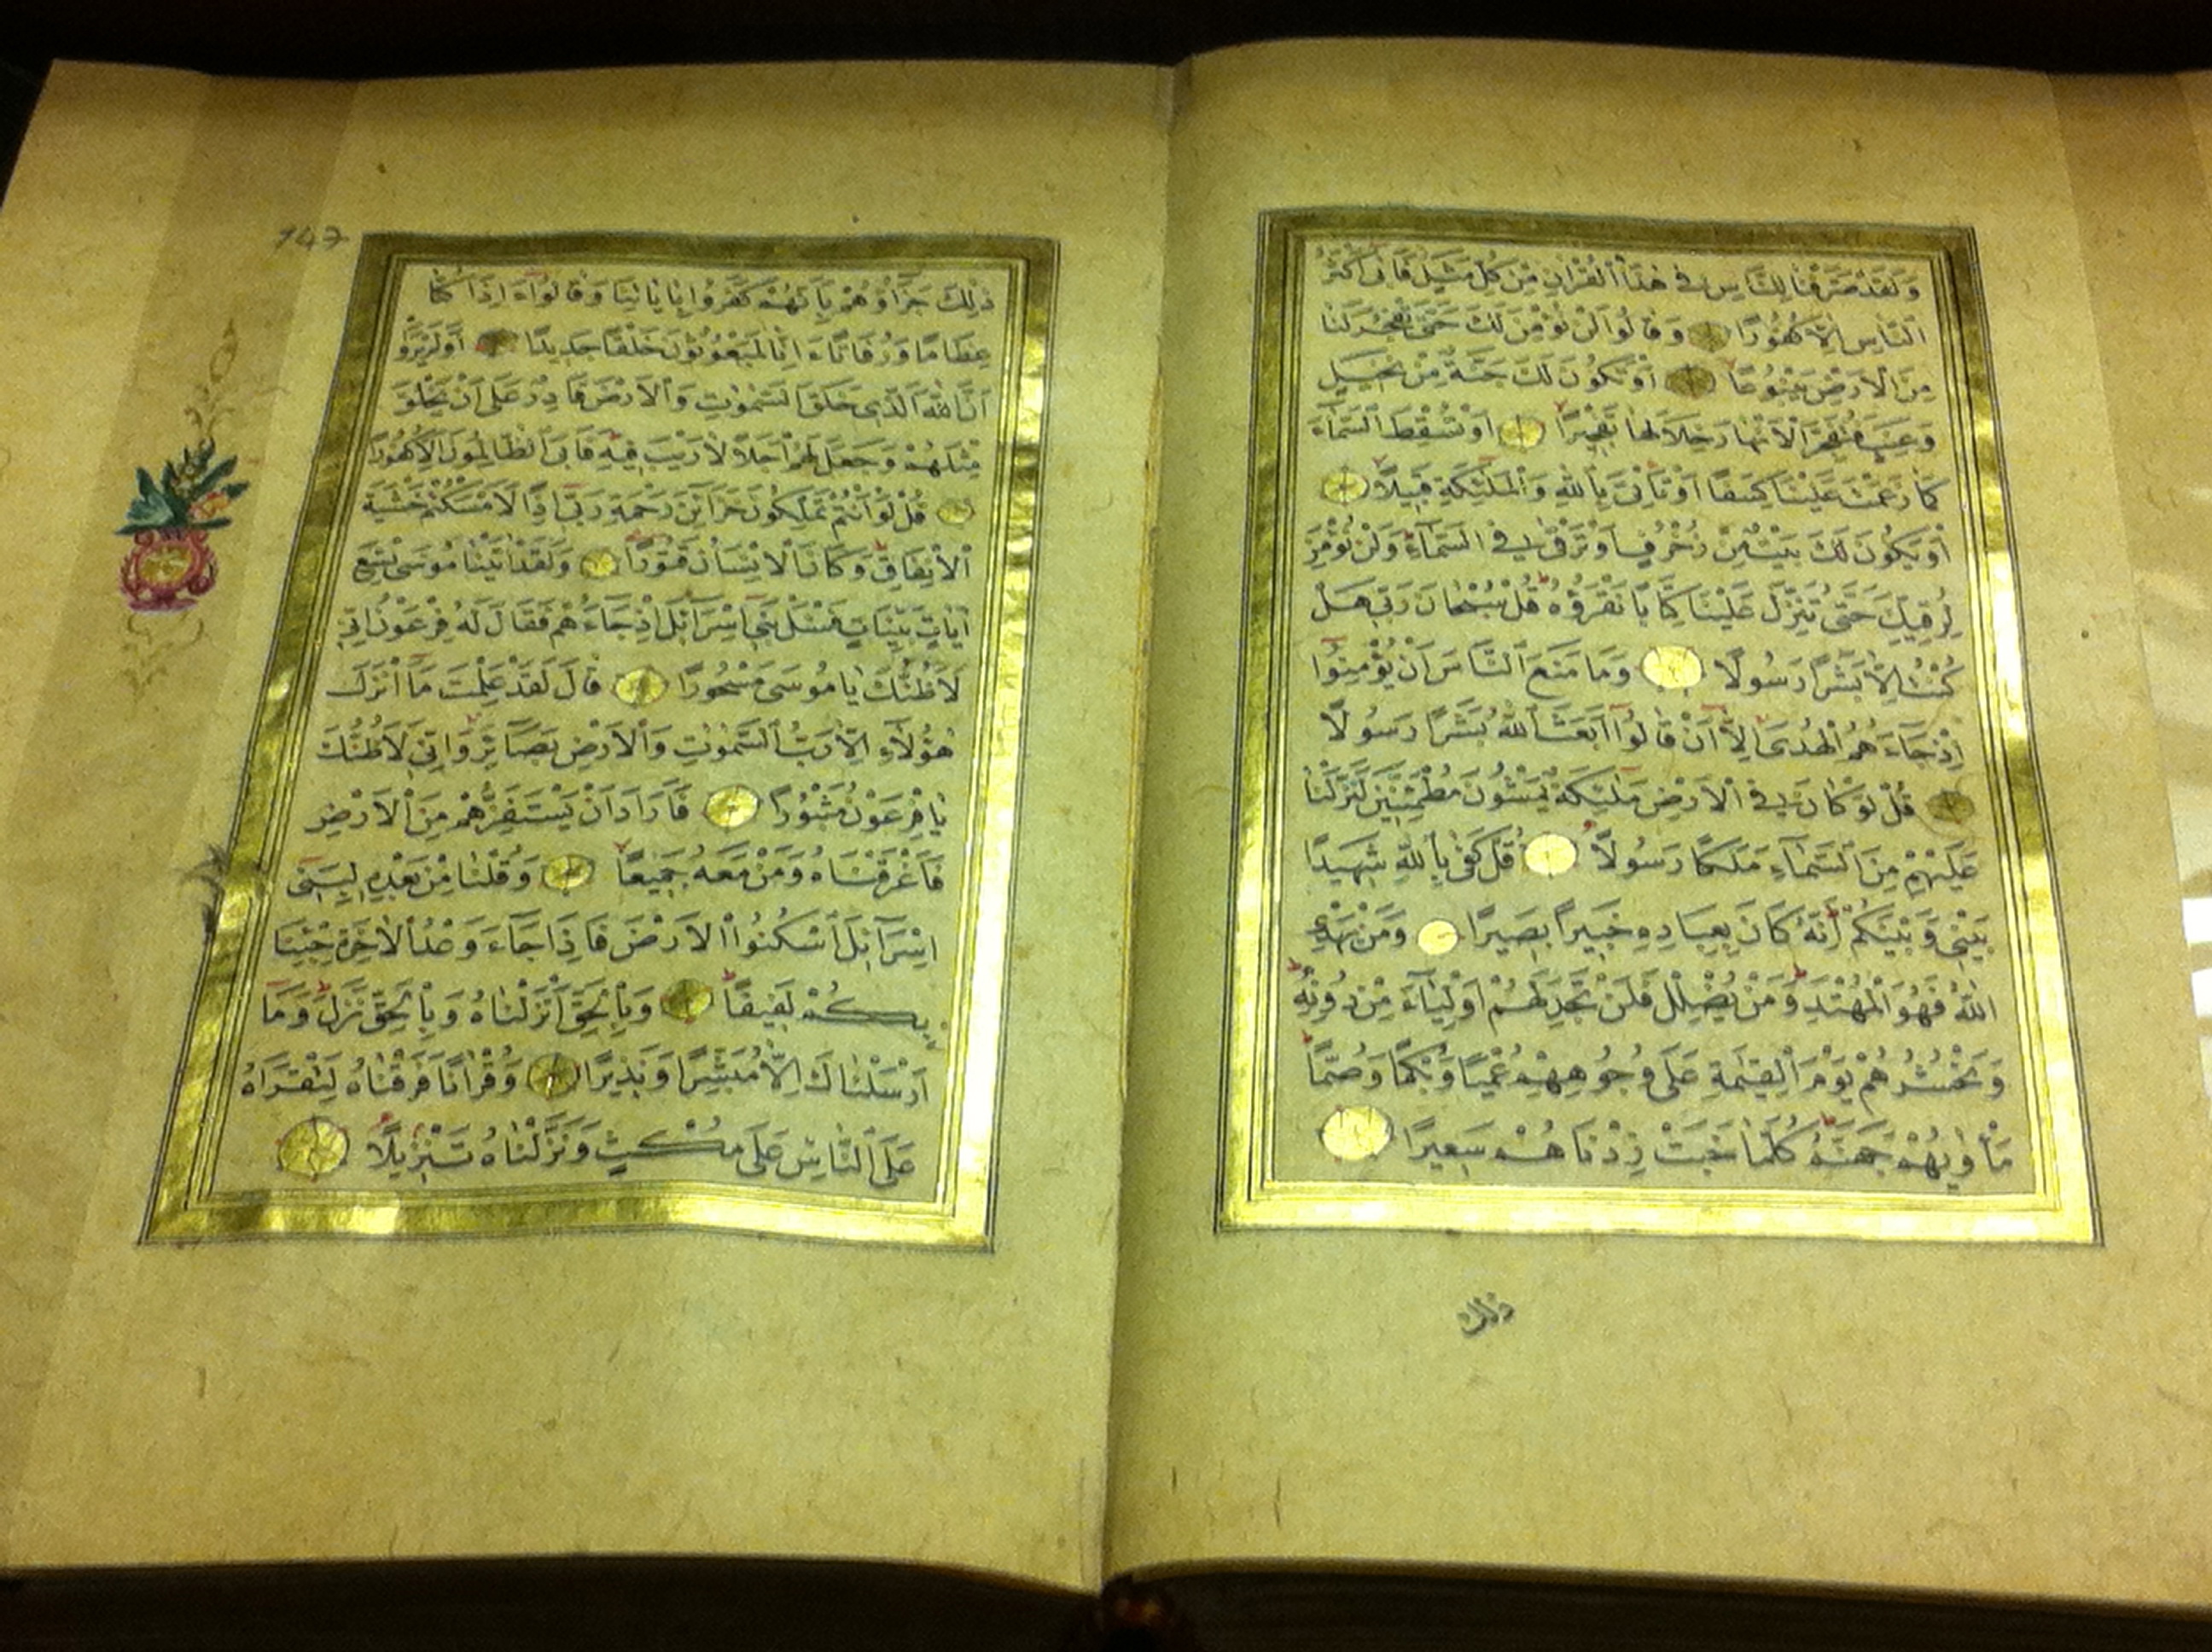 وَلَقَدْ صَرَّفْنَا لِلنَّاسِ فِى هٰذَا الْقُرْاٰنِ مِنْ كُلِّ مَثَلٍ فَاَبٰى اَكْثَرُ
النَّاسِ اِلَّا كُفُورًا وَقَالُوا لَنْ نُؤْمِنَ لَكَ حَتّٰى تَفْجُرَ لَنَا
مِنَ الْاَرْضِ يَنْبُوعًا اَوْ تَكُونَ لَكَ جَنَّةٌ مِنْ نَخِيلٍ
وَعِنَبٍ فَتُفَجِّرَ الْاَنْهَارَ خِلَالَهَا تَفْجِيرًا اَوْ تُسْقِطَ السَّمَاءَ
كَمَا زَعَمْتَ عَلَيْنَا كِسَفًا اَوْ تَأْتِىَ بِاللّٰهِ وَالْمَلٰئِكَةِ قَبِيلًا
اَوْ يَكُونَ لَكَ بَيْتٌ مِنْ زُخْرُفٍ اَوْ تَرْقٰى فِى السَّمَاءِ وَلَنْ نُؤْمِنَ
لِرُقِيِّكَ حَتّٰى تُنَزِّلَ عَلَيْنَا كِتَابًا نَقْرَؤُهُ قُلْ سُبْحَانَ رَبّى هَلْ
كُنْتُ اِلَّا بَشَرًا رَسُولًا وَمَا مَنَعَ النَّاسَ اَنْ يُؤْمِنُوا
اِذْ جَاءَهُمُ الْهُدٰى اِلَّا اَنْ قَالُوا اَبَعَثَ اللّٰهُ بَشَرًا رَسُولًا
قُلْ لَوْ كَانَ فِى الْاَرْضِ مَلٰئِكَةٌ يَمْشُونَ مُطْمَئِنِّينَ لَنَزَّلْنَا
عَلَيْهِمْ مِنَ السَّمَاءِ مَلَكًا رَسُولًا قُلْ كَفٰى بِاللّٰهِ شَهِيدًا
بَيْنِى وَبَيْنَكُمْ اِنَّهُ كَانَ بِعِبَادِهِ خَبِيرًا بَصِيرًا وَمَنْ يَهْدِ
اللّٰهُ فَهُوَ الْمُهْتَدِ وَمَنْ يُضْلِلْ فَلَنْ تَجِدَ لَهُمْ اَوْلِيَاءَ مِنْ دُونِهِ
وَنَحْشُرُهُمْ يَوْمَ الْقِيٰمَةِ عَلٰى وُجُوهِهِمْ عُمْيًا وَبُكْمًا وَصُمًّا
مَأْوٰيهُمْ جَهَنَّمُ كُلَّمَا خَبَتْ زِدْنَاهُمْ سَعِيرًا
ذلك
147
ذٰلِكَ جَزَاؤُهُمْ بِاَنَّهُمْ كَفَرُوا بِاٰيَاتِنَا وَقَالُوا ءَاِذَا كُنَّا
عِظَامًا وَرُفَاتًا ءَاِنَّا لَمَبْعُوثُونَ خَلْقًا جَدِيدًا اَوَلَمْ يَرَوْا
اَنَّ اللّٰهَ الَّذِى خَلَقَ السَّمٰوَاتِ وَالْاَرْضَ قَادِرٌ عَلٰى اَنْ يَخْلُقَ
مِثْلَهُمْ وَجَعَلَ لَهُمْ اَجَلًا لَا رَيْبَ فِيهِ فَاَبَى الظَّالِمُونَ اِلَّا كُفُورًا
قُلْ لَوْ اَنْتُمْ تَمْلِكُونَ خَزَائِنَ رَحْمَةِ رَبّى اِذًا لَاَمْسَكْتُمْ خَشْيَةَ
الْاِنْفَاقِ وَكَانَ الْاِنْسَانُ قَتُورًا وَلَقَدْ اٰتَيْنَا مُوسٰى تِسْعَ
اٰيَاتٍ بَيِّنَاتٍ فَسْئَلْ بَنِى اِسْرَائِلَ اِذْ جَاءَهُمْ فَقَالَ لَهُ فِرْعَوْنُ اِنِّى
لَاَظُنُّكَ يَا مُوسٰى مَسْحُورًا قَالَ لَقَدْ عَلِمْتَ مَا اَنْزَلَ
هٰؤُلَاءِ اِلَّا رَبُّ السَّمٰوَاتِ وَالْاَرْضِ بَصَائِرَ وَاِنِّى لَاَظُنُّكَ
يَا فِرْعَوْنُ مَثْبُورًا فَاَرَادَ اَنْ يَسْتَفِزَّهُمْ مِنَ الْاَرْضِ
فَاَغْرَقْنَاهُ وَمَنْ مَعَهُ جَمِيعًا وَقُلْنَا مِنْ بَعْدِهِ لِبَنِى
اِسْرَائِلَ اسْكُنُوا الْاَرْضَ فَاِذَا جَاءَ وَعْدُ الْاٰخِرَةِ جِئْنَا
بِكُمْ لَفِيفًا وَبِالْحَقِّ اَنْزَلْنَاهُ وَبِالْحَقِّ نَزَلَ وَمَا
اَرْسَلْنَاكَ اِلَّا مُبَشِّرًا وَنَذِيرًا وَقُرْاٰنًا فَرَقْنَاهُ لِتَقْرَاَهُ
عَلَى النَّاسِ عَلٰى مُكْثٍ وَنَزَّلْنَاهُ تَنْزِيلًا